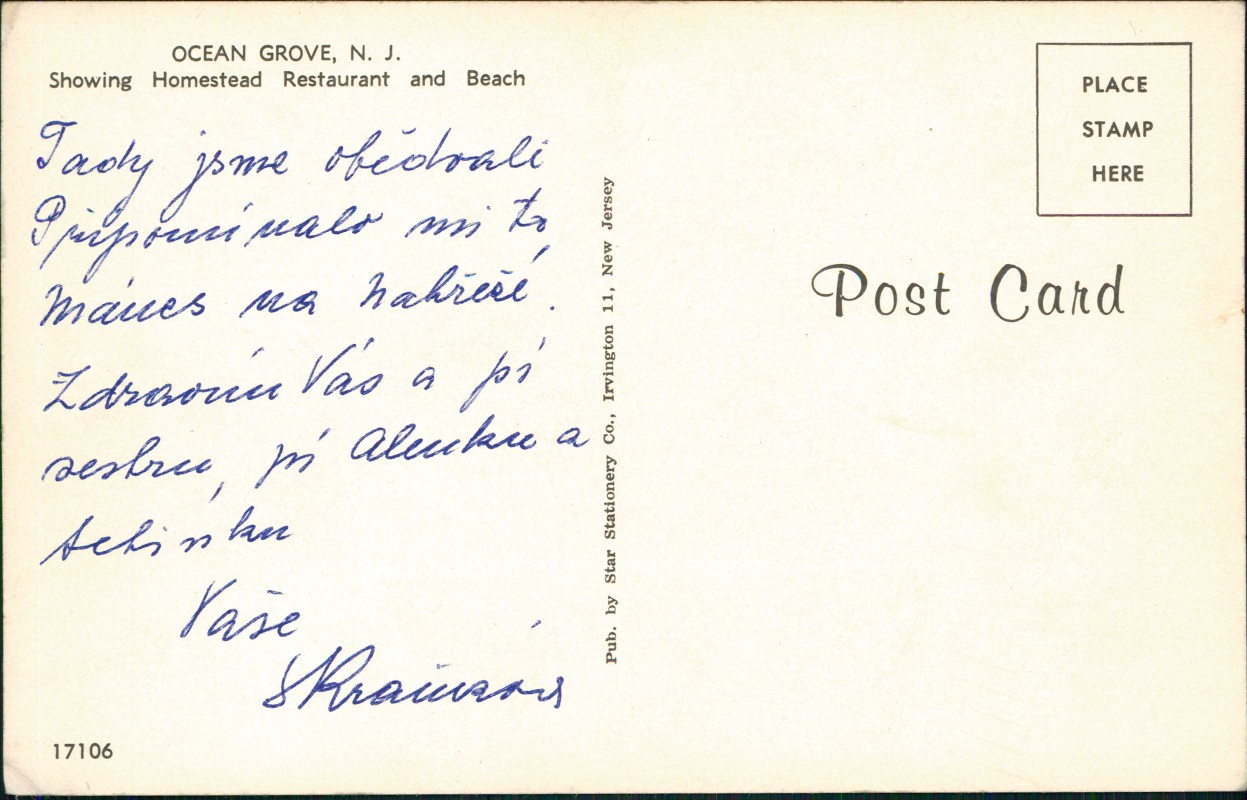 OCEAN GROVE, N. J.
Showing Homestead Restaurant and Beach
Tady jsme obědvali
Připomínalo mi to
Mánes na nábřeží.
Zdravím Vás a pí
sestru, pí Alenku a
tetinku
Vaše
PLACE
STAMP
HERE
Post Card
Pub. by Star Stationery Co., Irvington 11, New Jersey
17106